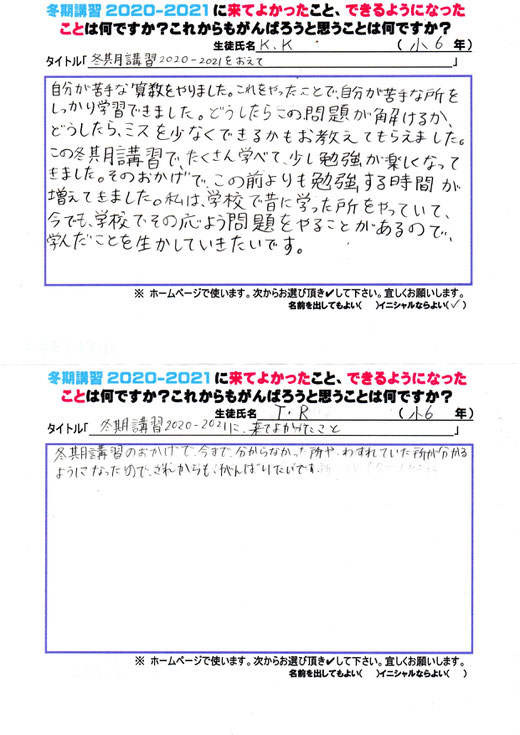 冬期講習2020-2021に来てよかったこと、できるようになった
ことは何ですか？これからもがんばろうと思うことは何ですか？
生徒氏名 K.K （小6年）
タイトル「冬期講習2020-2021をおえて」
自分が苦手な算数をやりました。これをやったことで、自分が苦手な所を
しっかり学習できました。どうしたらこの問題が解けるか、
どうしたら、ミスを少なくできるかもお教えてもらえました。
この冬期講習で、たくさん学べて、少し勉強が楽しくなって
きました。そのおかげで、この前よりも勉強する時間が
増えてきました。私は、学校で昔に学った所をやっていて、
今でも、学校でその応よう問題をやることがあるので、
学んだことを生かしていきたいです。
※ ホームページで使います。次からお選び頂き✔して下さい。宜しくお願いします。
名前を出してもよい（ ）イニシャルならよい（✓）
冬期講習2020-2021に来てよかったこと、できるようになった
ことは何ですか？これからもがんばろうと思うことは何ですか？
生徒氏名 T.R （小6 年）
タイトル「冬期講習2020-2021に、来てよかったこと」
冬期講習のおかげで、今まで、分からなかった所や、わすれていた所が分かる
ようになったので、これからも、がんばりたいです。
※ ホームページで使います。次からお選び頂き✔して下さい。宜しくお願いします。
名前を出してもよい（ ）イニシャルならよい（ ）